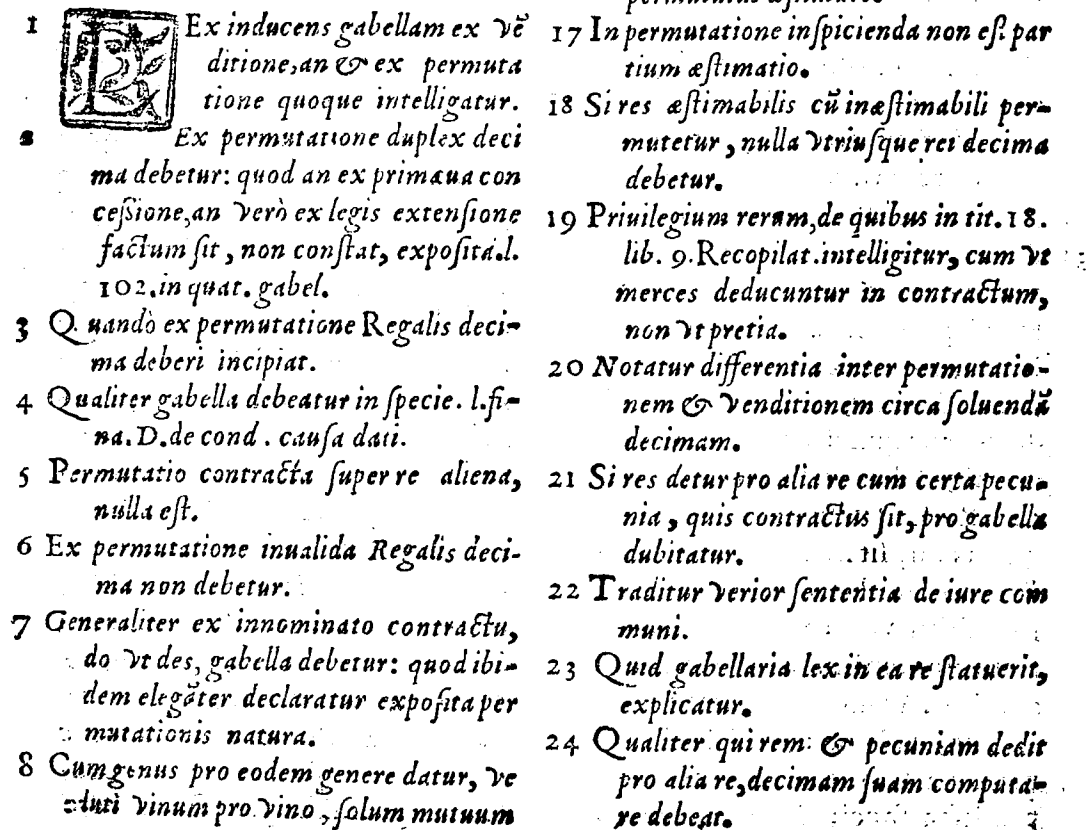 1 LEx inducens gabellam ex vẽ
ditione, an & ex permuta
tione quoque intelligatur.
2 Ex permutatione duplex deci
ma debetur: quod an ex primæua con
ceſsione, an verò ex legis extenſione
factum ſit, non conſtat, expoſita.l.
102. in quat. gabel.
3 Quandò ex permutatione Regalis deci-
ma deberi incipiat.
4 Qualiter gabella debeatur in ſpecie. l. fi-
na. D. de cond. cauſa dati.
5 Permutatio contracta ſuper re aliena,
nulla eſt.
6 Ex permutatione inualida Regalis deci-
ma non debetur.
7 Generaliter ex innominato contractu,
do vt des, gabella debetur: quod ibi-
dem elegãter declaratur expoſita per
mutationis natura.
8 Cum genus pro eodem genere datur, ve
luti vinum pro vino, ſolum mutuum
17 In permutatione inſpicienda non eſt par
tium æſtimatio.
18 Si res æſtimabilis cũ inæſtimabili per-
mutetur, nulla vtriuſque rei decima
debetur.
19 Priuilegium rerum, de quibus in tit. 18.
lib. 9. Recopilat. intelligitur, cum vt
merces deducuntur in contractum,
non vt pretia.
20 Notatur differentia inter permutatio-
nem & venditionem circa ſoluendã
decimam.
21 Si res detur pro alia re cum certa pecu-
nia, quis contractus ſit, pro gabella
dubitatur.
22 Traditur verior ſententia de iure com
muni.
23 Quid gabellaria lex in ea re ſtatuerit,
explicatur.
24 Qualiter qui rem & pecuniam dedit
pro alia re, decimam ſuam computa-
re debeat.